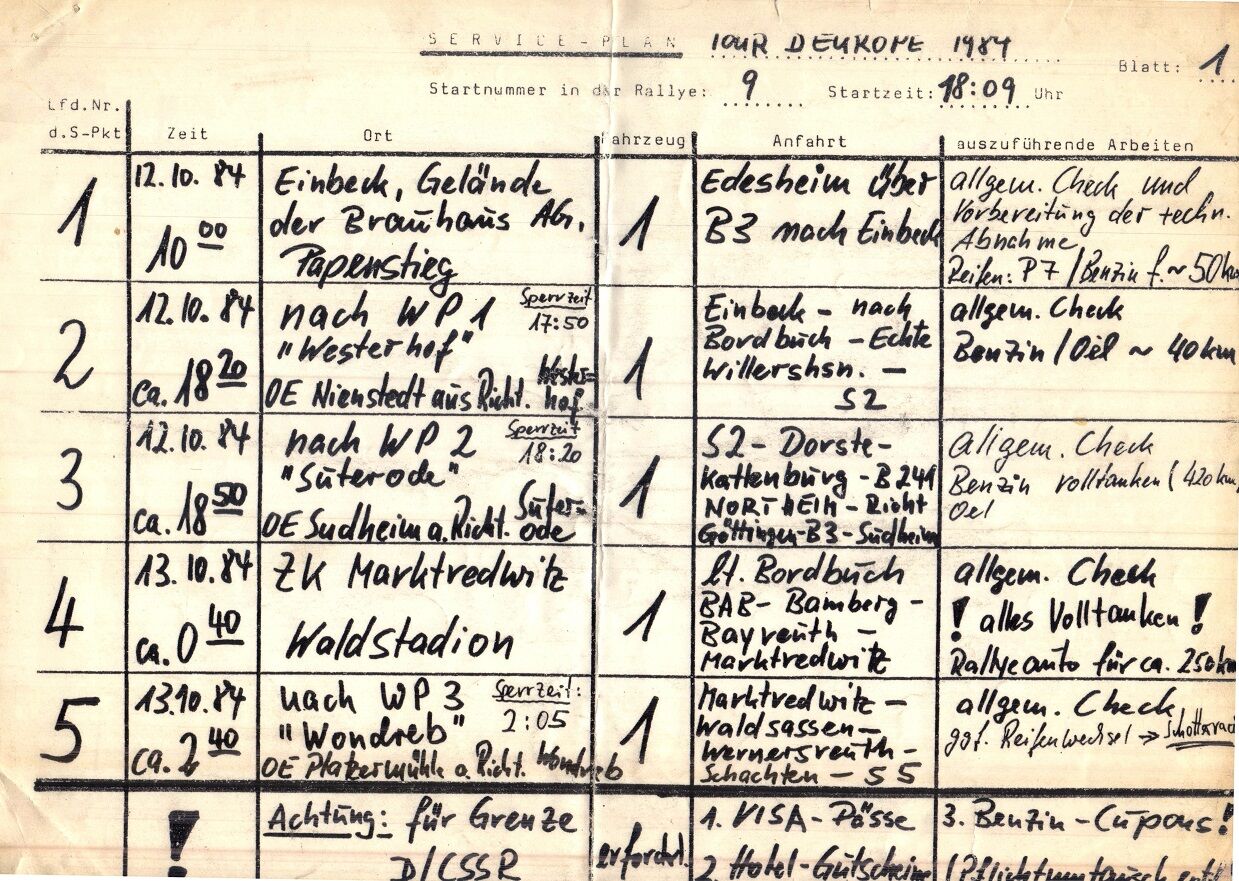 SERVICE-PLAN TOUR D'EUROPE 1984
Blatt: 1
Startnummer in der Rallye: 9 Startzeit: 18:09 Uhr
Lfd.Nr.
d.S-Pkt Zeit Ort Fahrzeug Anfahrt auszuführende Arbeiten
1
12.10.84
10 00
Einbeck, Gelände
der Brauhaus AG,
Papenstieg
1
Edesheim über
B3 nach Einbeck
allgem. Check und
Vorbereitung der techn.
Abnahme
Reifen: P7 / Benzin f. ~ 50 km
2
12.10.84
ca. 18 20
nach WP 1
Sperrzeit
17:50
"Westerhof"
OE Nienstedt aus Richt. Wester=
hof
1
Einbeck - nach
Bordbuch - Echte
Willershsn. -
S2
allgem. Check
Benzin / Oel ~ 40 km
3
12.10.84
ca. 18 50
nach WP 2
Sperrzeit
18:20
"Suterode"
OE Sudheim a. Richt. Suter=
ode
1
S2 - Dorste-
Kattenburg - B241
NORTHEIM - Richt
Göttingen-B3-Sudheim
allgem. Check
Benzin volltanken (420 km)
Oel
4
13.10.84
ca. 0 40
ZK Marktredwitz
Waldstadion
1
lt. Bordbuch
BAB - Bamberg -
Bayreuth -
Marktredwitz
allgem. Check
! alles Volltanken !
Rallyeauto für ca. 250 km
5
13.10.84
ca. 2 40
nach WP 3
Sperrzeit:
2:05
"Wondreb"
OE Platzermühle a. Richt. Wondreb
1
Marktredwitz -
Waldsassen -
Wernersreuth -
Schachten - S5
allgem. Check
ggf. Reifenwechsel →
!
Achtung: für Grenze
D/CSSR
erfordrl.
1. VISA - Pässe
2. Hotel - Gutschein
3. Benzin - Cupons!
(Pflichtumtausch